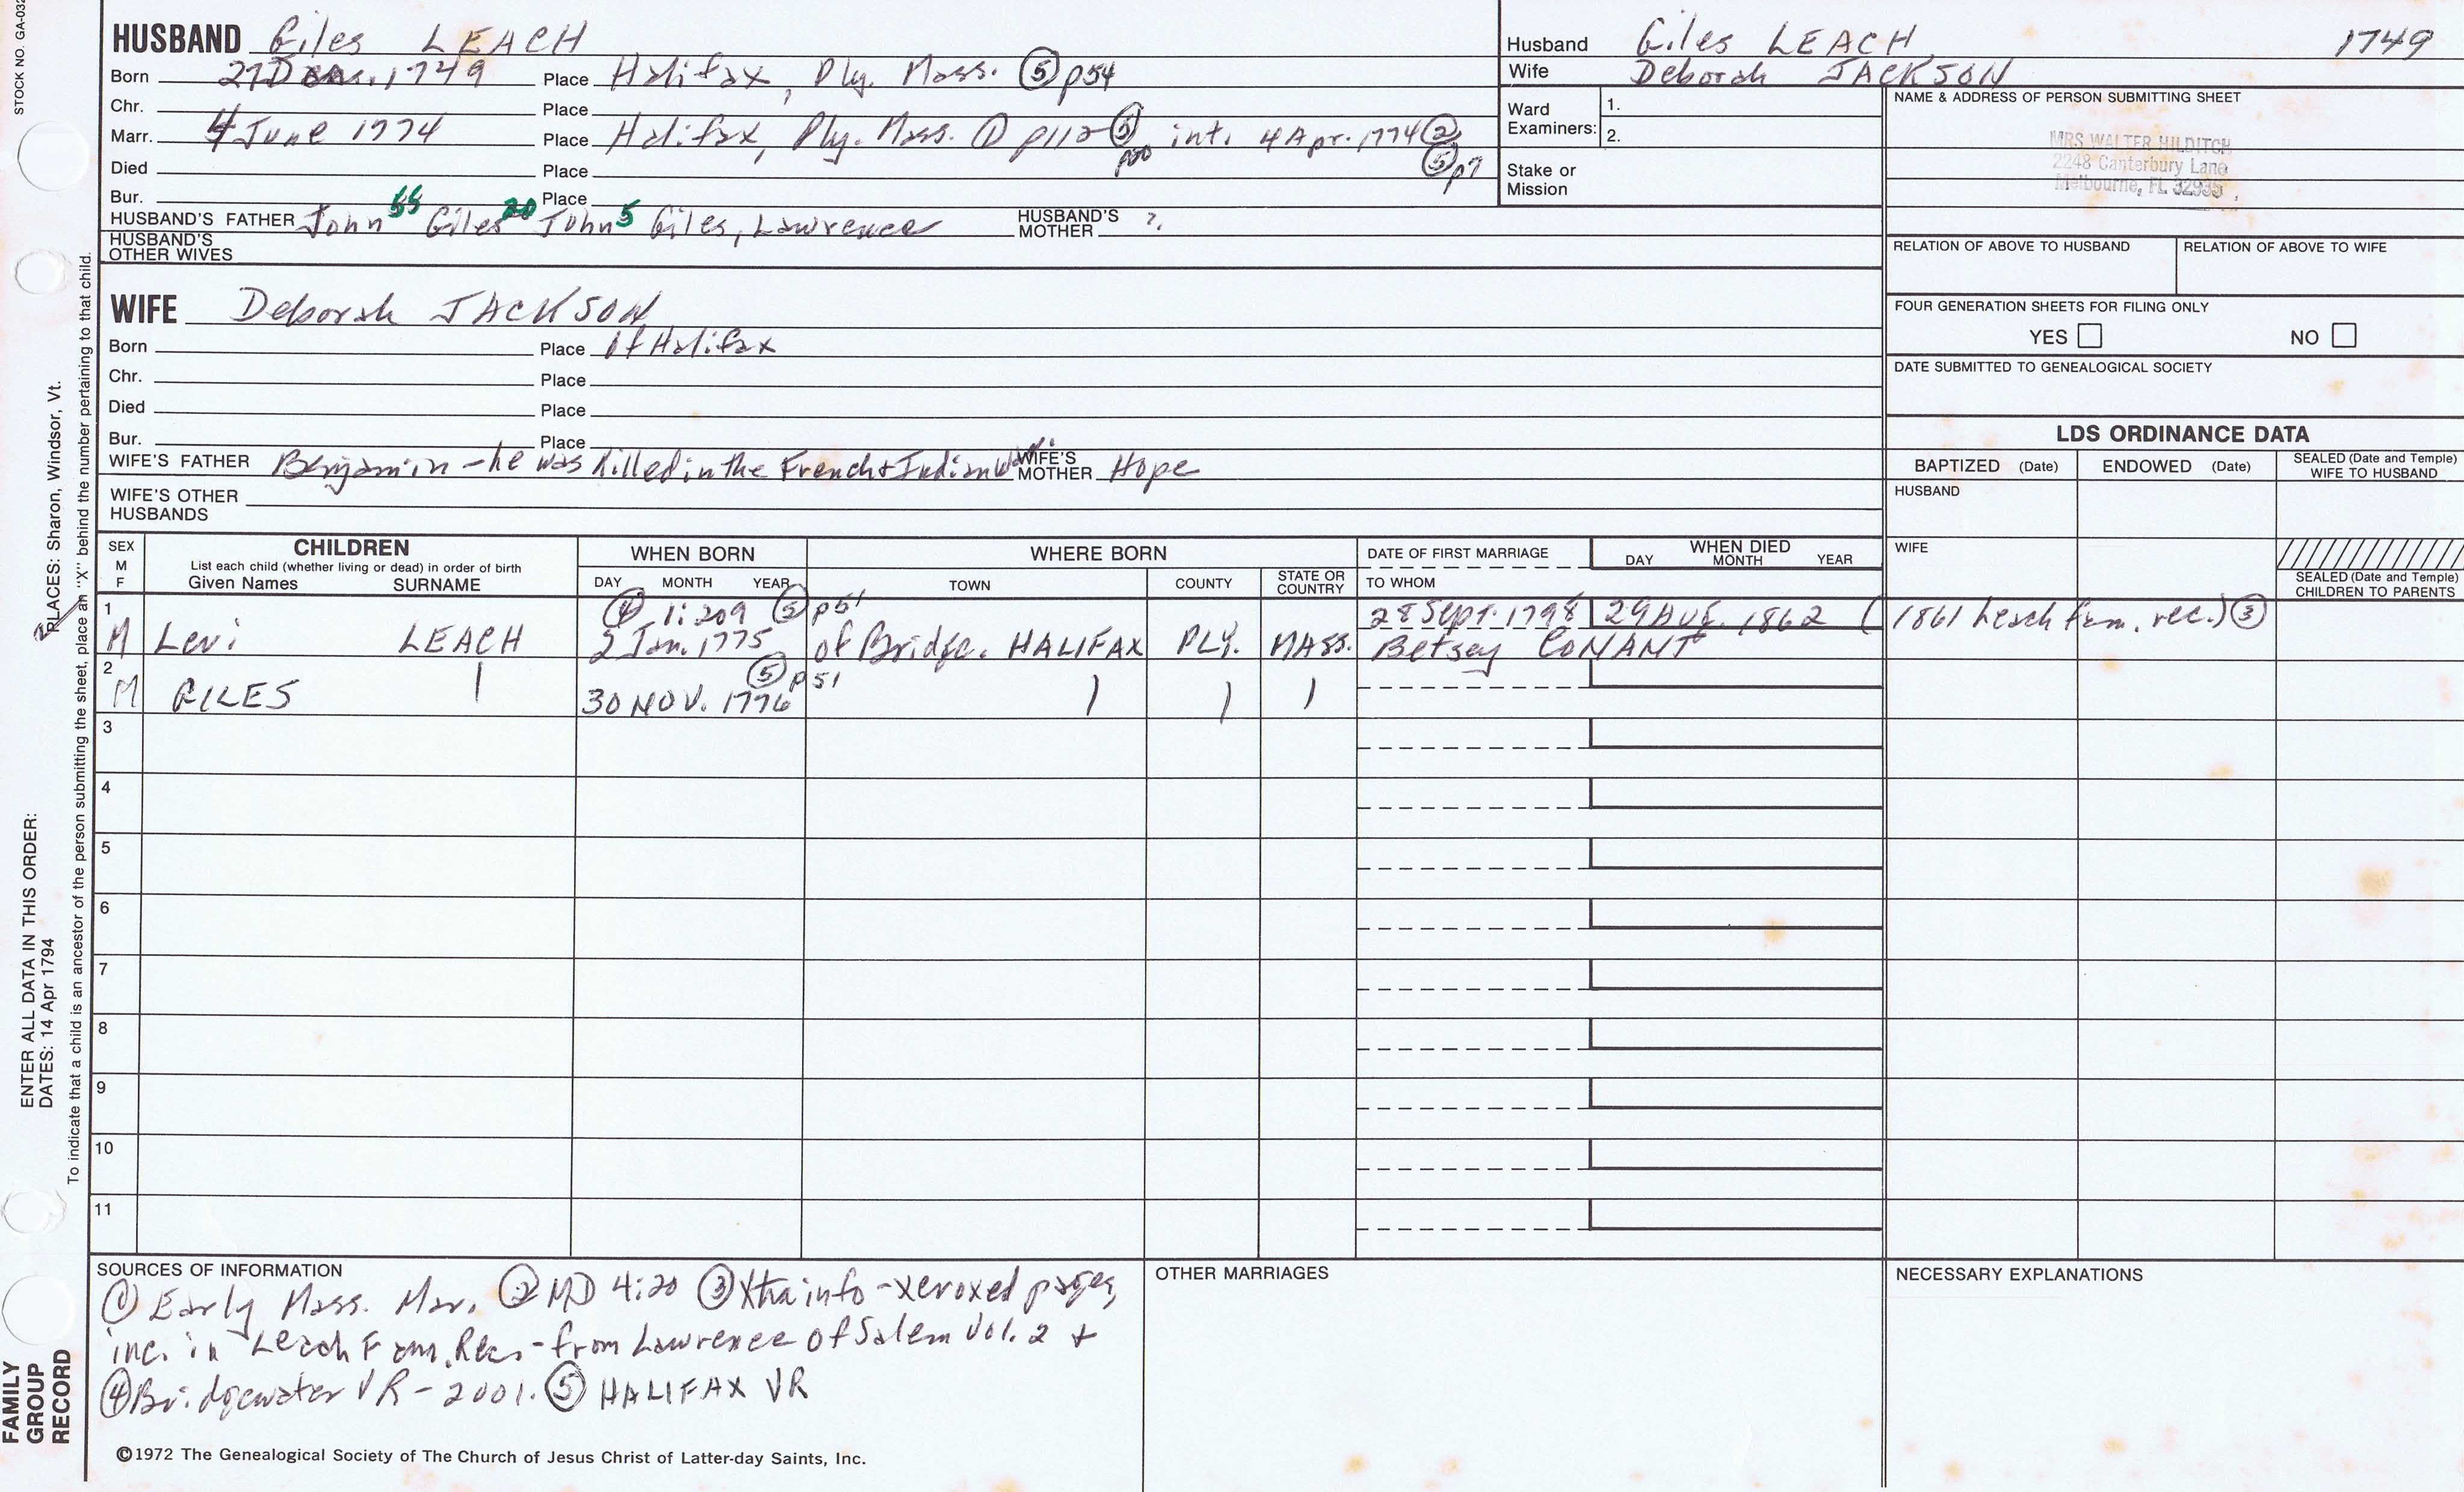 STOCK NO. GA-032
HUSBAND Giles LEACH
Born 27 Dec. 1749 Place Halifax, Ply. Mass. ⑤ p54
Chr. Place
Marr. 4 June 1774 Place Halifax, Ply. Mass. ① p112 ⑤ p50 int. 4 Apr. 1774 ② ⑤ p7
Died Place
Bur. Place
HUSBAND'S FATHER John 55 Giles 20 John 5 Giles, Lawrence HUSBAND'S MOTHER ?
HUSBAND'S OTHER WIVES
Husband Giles LEACH 1749
Wife Deborah JACKSON
Ward Examiners: 1.
2.
Stake or Mission
NAME & ADDRESS OF PERSON SUBMITTING SHEET
MRS WALTER HILDITCH
2248 Canterbury Lane
Melbourne, FL 32935
RELATION OF ABOVE TO HUSBAND RELATION OF ABOVE TO WIFE
FOUR GENERATION SHEETS FOR FILING ONLY
YES NO
DATE SUBMITTED TO GENEALOGICAL SOCIETY
WIFE Deborah JACKSON
Born Place of Halifax
Chr. Place
Died Place
Bur. Place
WIFE'S FATHER Benjamin - he was killed in the French & Indian War. WIFE'S MOTHER Hope
WIFE'S OTHER HUSBANDS
LDS ORDINANCE DATA
BAPTIZED (Date) ENDOWED (Date) SEALED (Date and Temple) WIFE TO HUSBAND
HUSBAND
WIFE
SEALED (Date and Temple) CHILDREN TO PARENTS
SEX M F
CHILDREN
List each child (whether living or dead) in order of birth
Given Names SURNAME
WHEN BORN
DAY MONTH YEAR
WHERE BORN
TOWN COUNTY STATE OR COUNTRY
DATE OF FIRST MARRIAGE
TO WHOM
WHEN DIED
DAY MONTH YEAR
1 ④ 1:209 ⑤ p51 28 Sept. 1798 29 Aug. 1862 (1861 Leach fam. rec.) ③
M Levi LEACH 2 Jan. 1775 of Bridge. HALIFAX PLY. MASS. Betsey CONANT
2 ⑤ p51
M GILES | 30 NOV. 1776 ) ) )
3
4
5
6
7
8
9
10
11
SOURCES OF INFORMATION
① Early Mass. Mar. ② MD 4:20 ③ Xtra info - xeroxed pages,
inc. in Leach Fam. Recs - from Lawrence of Salem Vol. 2 +
④ Bridgewater VR - 2001. ⑤ HALIFAX VR
OTHER MARRIAGES
NECESSARY EXPLANATIONS
©1972 The Genealogical Society of The Church of Jesus Christ of Latter-day Saints, Inc.
FAMILY GROUP RECORD
ENTER ALL DATA IN THIS ORDER:
DATES: 14 Apr 1794
PLACES: Sharon, Windsor, Vt.
To indicate that a child is an ancestor of the person submitting the sheet, place an "X" behind the number pertaining to that child.